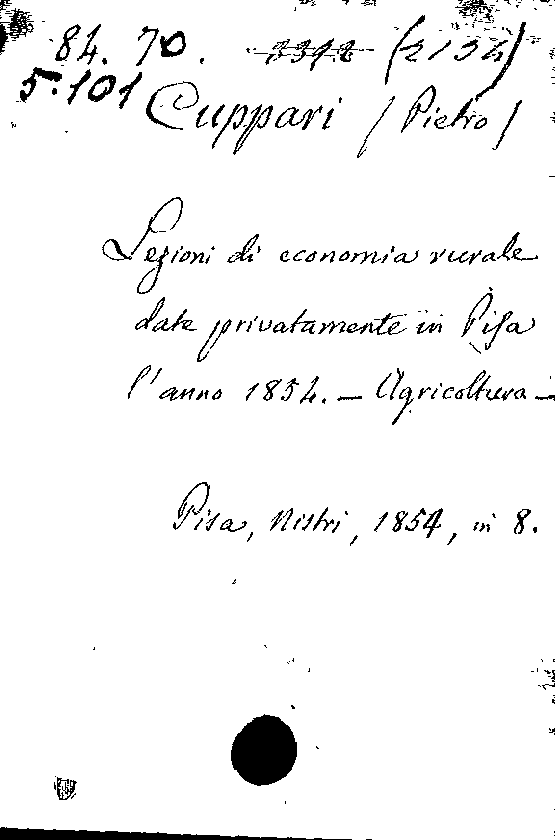 84. 70. (2134)
5.101
Cuppari (Pietro)
Lezioni di economia rurale
date privatamente in Pisa
l'anno 1854. — Agricoltura —
Pisa, Nistri, 1854, in 8.